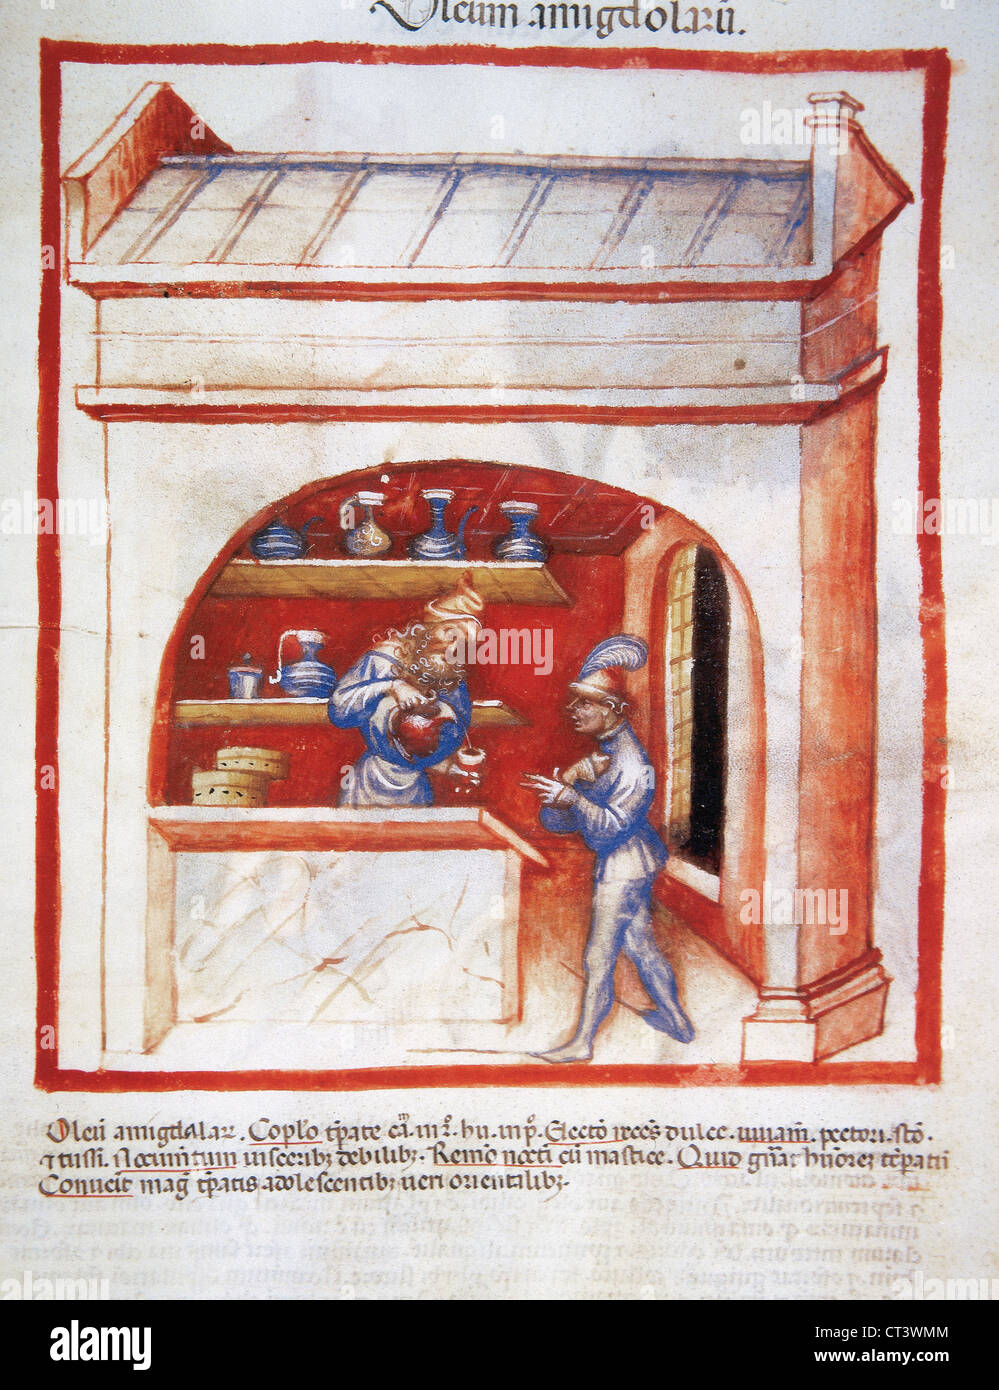 Oleum amigdolarũ.
Oleũ amigdalar. Coplo tp̃ate cã. in 2. hu. in p̃. Electõ reces dulce. iuuam. pectori. stõ.
⁊ tussi. Nocumẽtum uisceribꝫ debilibꝫ. Remõ nocti cũ mastice. Quid gñat huore tp̃atũ
Conueit mag̃ tp̃atis adolescentibꝫ ueri orientalibꝫ.
alamy
Image ID: CT3WMM
www.alamy.com